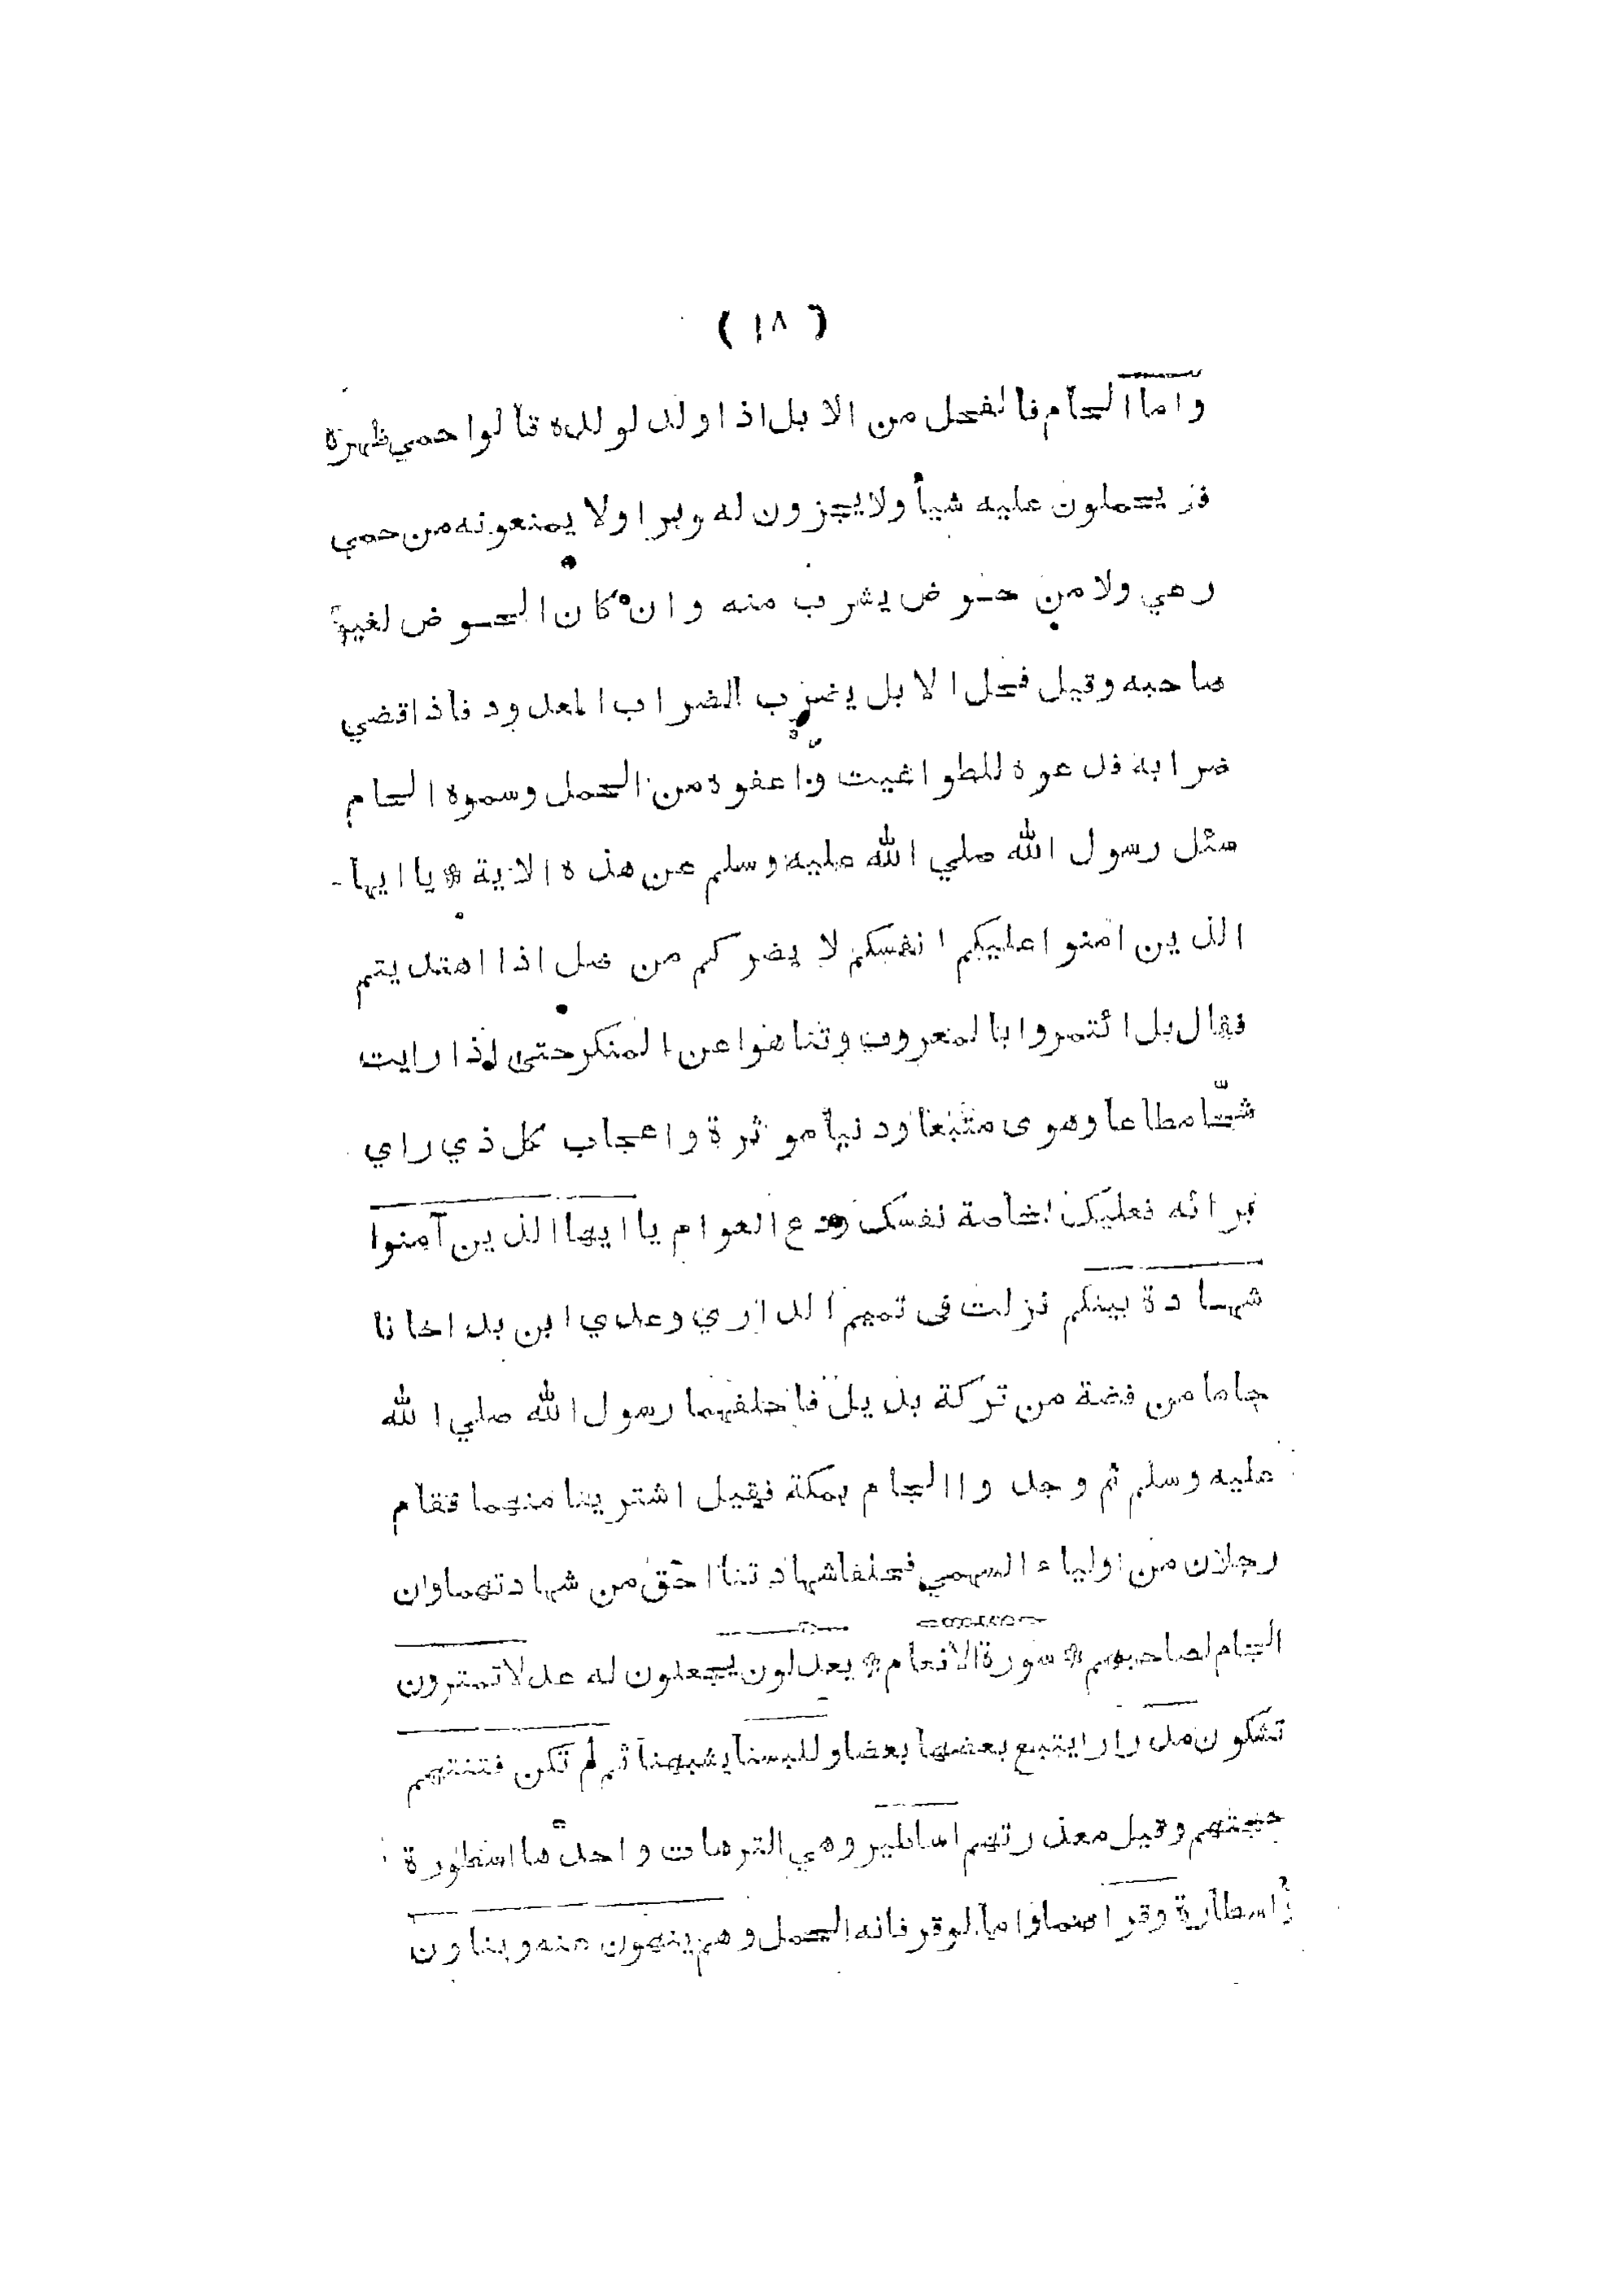 ( ١٨ )
واما الحام فالفحل من الابل اذا ولد لولده قالوا حمي ظهره
فلا يحملون عليه شيأ ولا يجزون له وبرا ولا يمنعونه من حمي
رعي ولا من حوض يشرب منه وان كان الحوض لغير
صاحبه وقيل فحل الابل يضرب الضراب المعدود فاذا قضي
ضرابه فدعوه للطواغيت واعفوه من الحمل وسموه الحام
سئل رسول الله صلي الله عليه وسلم عن هذه الاية * يا ايها -
الذين امنوا عليكم انفسكم لا يضركم من ضل اذا اهتديتم
فقال بل ائتمروا بالمعروف وتناهوا عن المنكر حتى اذا رايت
شحّا مطاعا وهوى متبعا ودنيا موثرة واعجاب كل ذي راي
برائه فعليك خاصة نفسك ودع العوام يا ايها الذين آمنوا
شهادة بينكم نزلت فى تميم الداري وعدي ابن بدا خانا
جاما من فضة من تركة بديل فاحلفهما رسول الله صلي الله
عليه وسلم ثم وجدوا الجام بمكة فقيل اشترينا منهما فقام
رجلان من اولياء السهمي فحلفا شهادتنا احق من شهادتهما وان
الجام لصاحبهم * سورة الانعام * يعدلون يجعلون له عدلا تمترون
تشكون مدرارا يتبع بعضها بعضا وللبسنا يشبهنا ثم لم تكن فتنتهم
حجتهم وقيل معذرتهم اساطير وهي الترهات واحدها اسطورة
واسطارة وقرا صمما واما لوقر فانه الحمل وهم ينهون عنه ويناون